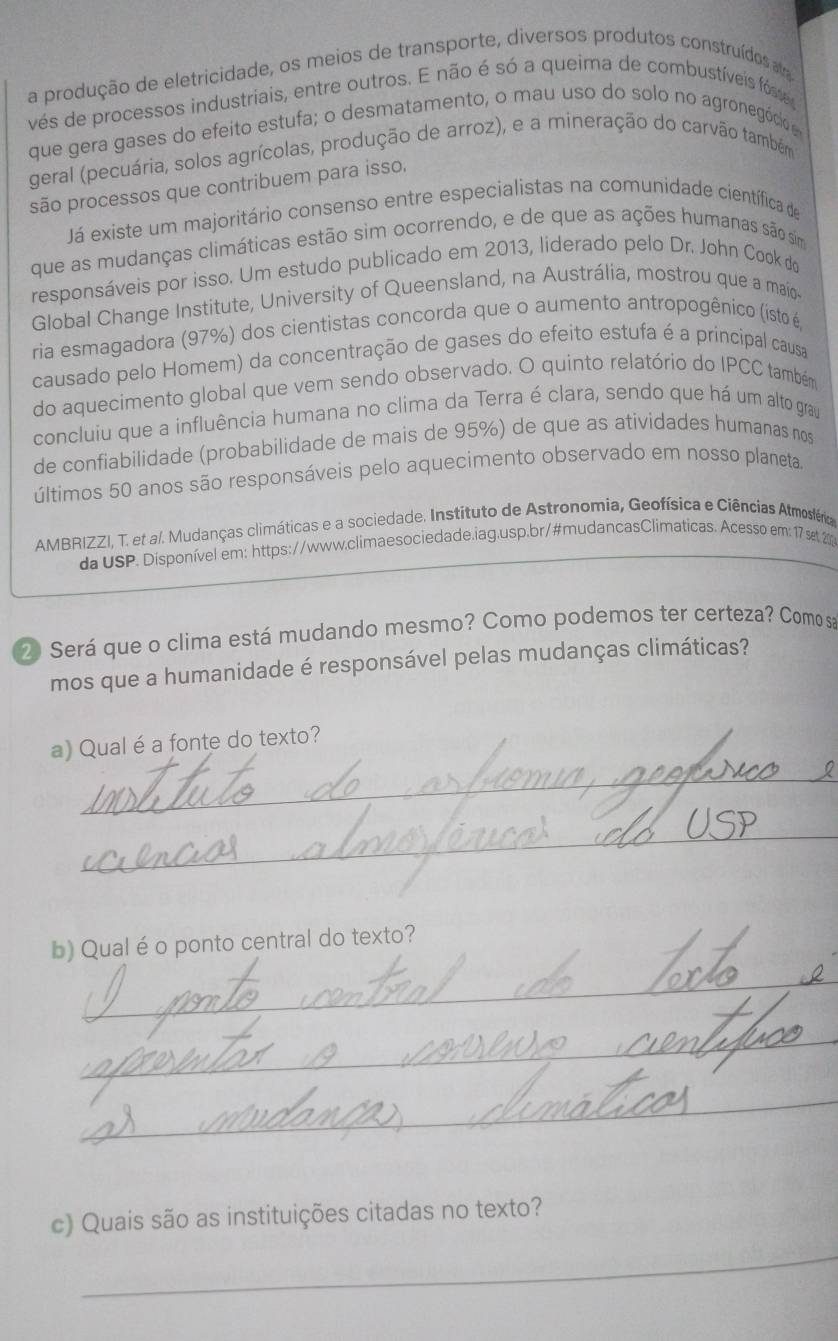 a produção de eletricidade, os meios de transporte, diversos produtos construídos atra
vés de processos industriais, entre outros. E não é só a queima de combustíveis fósseis
que gera gases do efeito estufa; o desmatamento, o mau uso do solo no agronegócio em
geral (pecuária, solos agrícolas, produção de arroz), e a mineração do carvão também
são processos que contribuem para isso.
Já existe um majoritário consenso entre especialistas na comunidade científica de
que as mudanças climáticas estão sim ocorrendo, e de que as ações humanas são sim
responsáveis por isso. Um estudo publicado em 2013, liderado pelo Dr. John Cook do
Global Change Institute, University of Queensland, na Austrália, mostrou que a maio-
ria esmagadora (97%) dos cientistas concorda que o aumento antropogênico (isto é,
causado pelo Homem) da concentração de gases do efeito estufa é a principal causa
do aquecimento global que vem sendo observado. O quinto relatório do IPCC também
concluiu que a influência humana no clima da Terra é clara, sendo que há um alto grau
de confiabilidade (probabilidade de mais de 95%) de que as atividades humanas nos
últimos 50 anos são responsáveis pelo aquecimento observado em nosso planeta.
AMBRIZZI, T. et al. Mudanças climáticas e a sociedade. Instituto de Astronomia, Geofísica e Ciências Atmosférica
da USP. Disponível em: https://www.climaesociedade.iag.usp.br/#mudancasClimaticas. Acesso em: 17 set. 2024
2 Será que o clima está mudando mesmo? Como podemos ter certeza? Como sa
mos que a humanidade é responsável pelas mudanças climáticas?
a) Qual é a fonte do texto?
instituto do astromia, geofisico e
ciencias almosfericas do USP
b) Qual é o ponto central do texto?
O ponto central do texto e
apresentar o consenso cientifico
as mudanças climáticas
c) Quais são as instituições citadas no texto?